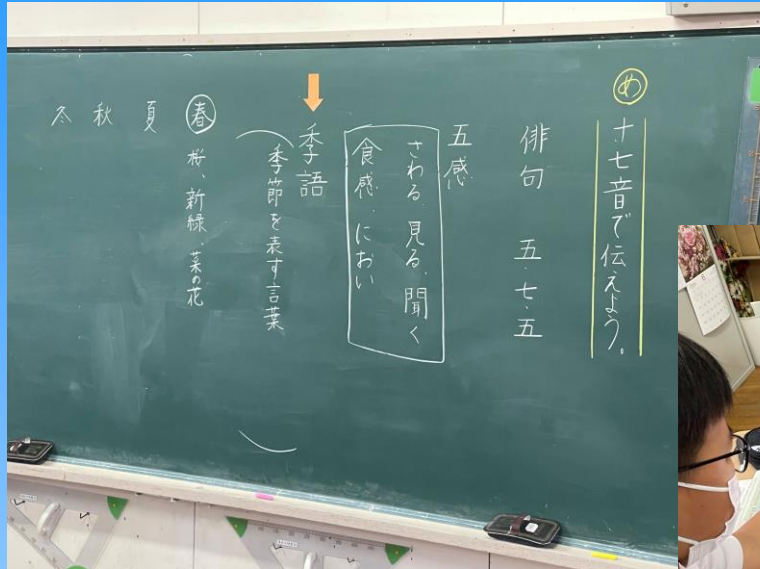 め
十七音で伝えよう。
俳句 五・七・五
五感
さわる、見る、聞く
食感、におい
季語
(季節を表す言葉)
春 桜、新緑、菜の花
夏
秋
冬